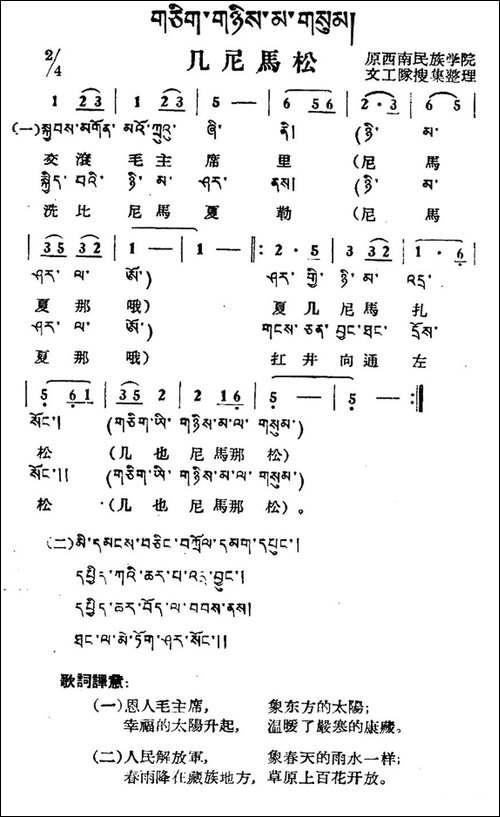 གཅིག་གཉིས་མ་གསུམ།
几尼馬松
2/4
原西南民族学院
文工隊搜集整理
1 2 3 | 1 2 3 | 5 — | 6 5 6 | 2 · 3 | 6 5 |
(一)སྐྱབས་མགོན་མའོ་ཀྲུའུ་ཞི་ནི། (ཉི་མ་
交滾毛主席里(尼馬
སྐྱིད་པའི་ཉི་མ་ཤར་ནས། (ཉི་མ་
洗比尼馬夏勒(尼馬
| 3 5 3 2 | 1 — | 1 — ‖: 2 · 5 | 3 3 2 | 1 · 6 |
ཤར་ལ་ཨོ་) ཤར་གྱི་ཉི་མ་འདྲ་
夏那哦) 夏几尼馬扎
ཤར་ལ་ཨོ་) གངས་ཅན་བྱང་ཐང་དྲོས་
夏那哦) 扛井向通左
| 5 6 1 | 3 5 2 | 2 1 6 | 5 — | 5 — :‖
སོང་། (གཅིག་ཡི་གཉིས་མ་ལ་གསུམ་)
松(几也尼馬那松)
སོང་།། (གཅིག་ཡི་གཉིས་མ་ལ་གསུམ་)
松(几也尼馬那松)。
(二)མི་དམངས་བཅིང་བཀྲོལ་དམག་དཔུང་།
དཔྱིད་ཀའི་ཆར་པ་འདྲ་བྱུང་།
དཔྱིད་ཆར་བོད་ལ་བབས་ནས།
ཐང་ལ་མེ་ཏོག་ཤར་སོང་།།
歌詞譯意:
(一)恩人毛主席, 象东方的太陽;
幸福的太陽升起, 温暖了嚴寒的康藏。
(二)人民解放軍, 象春天的雨水一样;
春雨降在藏族地方, 草原上百花开放。